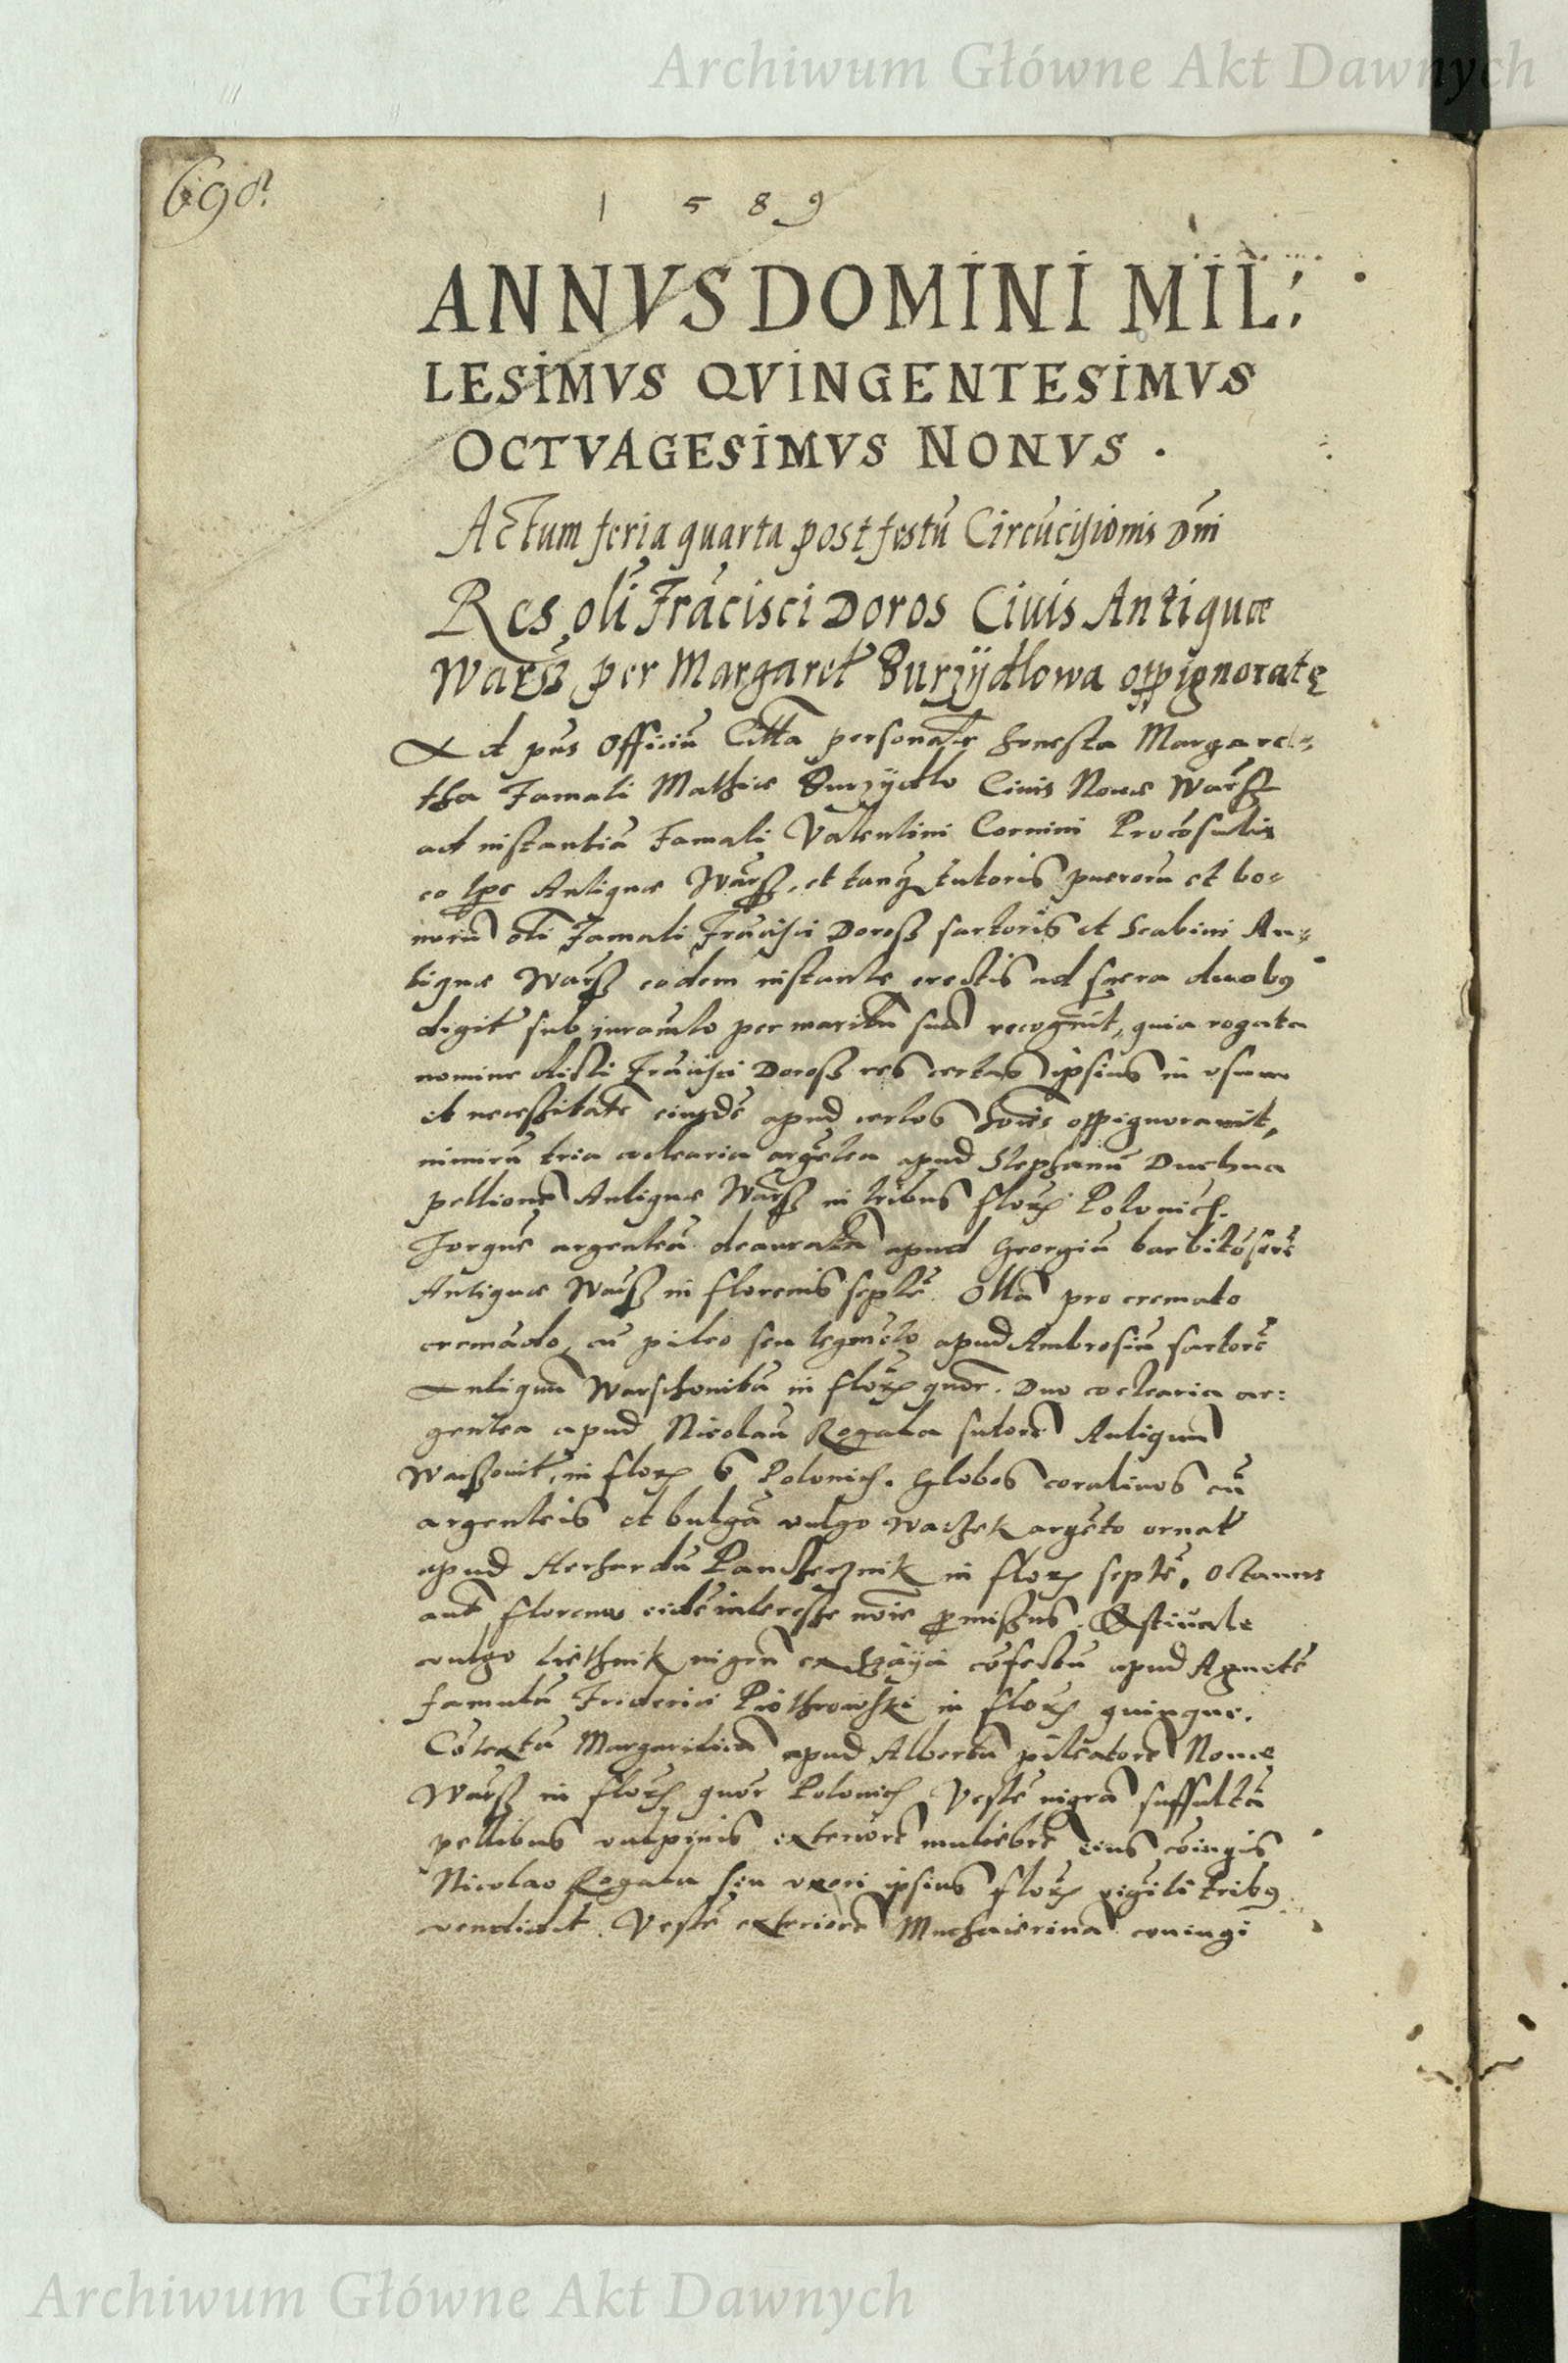 Archiwum Główne Akt Dawnych
698
1 5 8 9
ANNVS DOMINI MIL:
LESIMVS QVINGENTESIMVS
OCTVAGESIMVS NONVS .
Actum feria quarta post festū Circūcisionis Dni
Res oli Frācisci Doros Ciuis Antiquæ
Warß per Margaret Surzÿdlowa oppignoratę
Ad pns Officiū Citta personatr honesta Margare-
tha Famati Mathiæ Surzÿdlo Ciuis Nouæ Warß
ad instantiā Famati Valentini Cornini Procōsulis
eo tpe Antiquæ Warß, et tanq tutoris pueroru et bo-
noru oli Famati Frācisci Doroß sartoris et Scabini An-
tiquæ Warß eodem instante erectis ad sacra duobq
digit sub iuramto per maritu suu recognt, quia rogata
nomine dicti Frācisci Doroß res certas ipsius in vsum
et necessitate eiusdē apud certos hoies oppignorauit,
nimirū tria coclearia argētea apud Stephanū Duchna
pellione Antiquæ Warß in tribus flor Polonich.
Torquē argenteā deaurata apud Georgiū barbitōsorē
Antiquæ Warß in florenis septē. Olla pro cremato
cremādo, cu pileo seu tegmēto apud Ambrosiū sartorē
Antiqua Warschouitū in flor quor. Duo coclearia ar:
gentea apud Nicolau Rogala sutore Antiqua
Warßouit, in flor 6 Polonich. Globos coralinos cū
argenteis et bulgā vulgo waczek argēto ornat
apud Herhardū in flor septē, octauus
aut florenus eidē interesse noie pmissus. Æstiuale
vulgo liethnik nigru ex cōfectū apud Agnetē
famula Friderici Piothrowski in flor quinque.
Cōtextū Margaritica apud Albertū pileatore Nouæ
Warß in flor quor Polonich Vestē nigrā suffultā
pellibus vulpinis exteriore muliebre eius cōiugis
Nicolao Rogala seu vxori ipsius flor vigiti tribq
vendidit. Vestē exteriore Muchaierina coniugi
Archiwum Główne Akt Dawnych